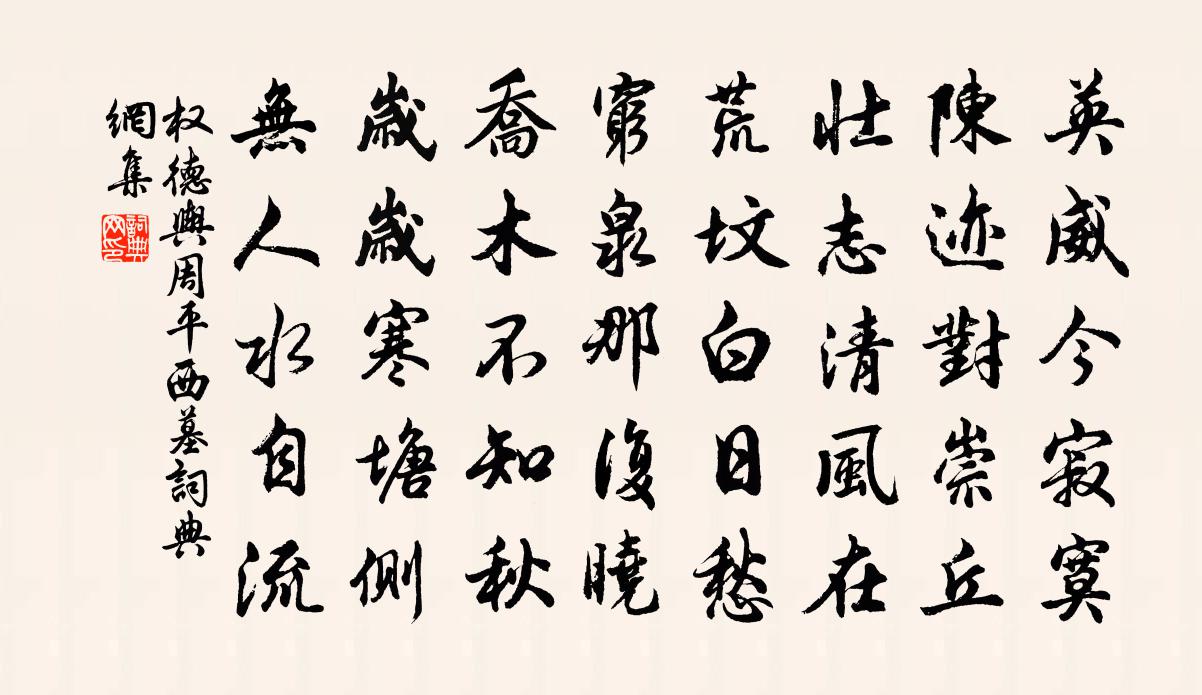 英威今寂寞
陳迹對崇丘
壯志清風在
荒墳白日愁
窮泉那復曉
喬木不知秋
歲歲寒塘側
無人水自流
权德輿周平西墓詞典
網集
詞典
网印